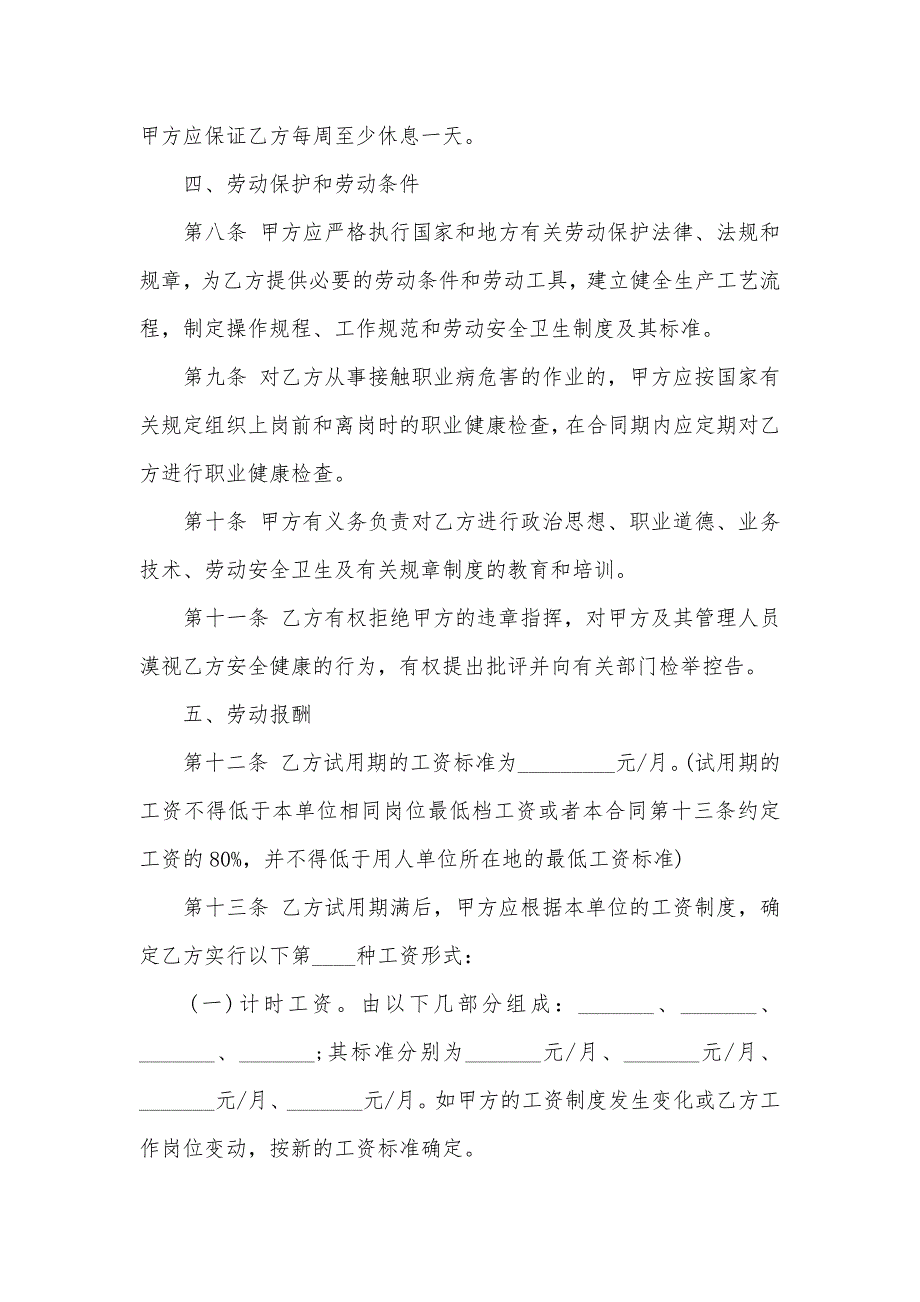 甲方应保证乙方每周至少休息一天。
四、劳动保护和劳动条件
第八条 甲方应严格执行国家和地方有关劳动保护法律、法规和
规章，为乙方提供必要的劳动条件和劳动工具，建立健全生产工艺流
程，制定操作规程、工作规范和劳动安全卫生制度及其标准。
第九条 对乙方从事接触职业病危害的作业的，甲方应按国家有
关规定组织上岗前和离岗时的职业健康检查，在合同期内应定期对乙
方进行职业健康检查。
第十条 甲方有义务负责对乙方进行政治思想、职业道德、业务
技术、劳动安全卫生及有关规章制度的教育和培训。
第十一条 乙方有权拒绝甲方的违章指挥，对甲方及其管理人员
漠视乙方安全健康的行为，有权提出批评并向有关部门检举控告。
五、劳动报酬
第十二条 乙方试用期的工资标准为_________元/月。(试用期的
工资不得低于本单位相同岗位最低档工资或者本合同第十三条约定
工资的80%，并不得低于用人单位所在地的最低工资标准)
第十三条 乙方试用期满后，甲方应根据本单位的工资制度，确
定乙方实行以下第____种工资形式：
(一)计时工资。由以下几部分组成：_______、_______、
_______、_______;其标准分别为_______元/月、_______元/月、
_______元/月、_______元/月。如甲方的工资制度发生变化或乙方工
作岗位变动，按新的工资标准确定。